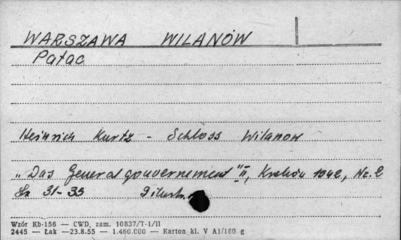 WARSZAWA WILANÓW
Pałac
Heinrich Kurtz - Schloss Wilanow
"Das Generalgouvernement" II, Kraków 1942, No. 2
31-33
Wzór Kb-156 — CWD, zam. 10837/T-1/II
2445 — Łak —23.8.55 — 1.480.000 — Karton kl. V A1/180 g